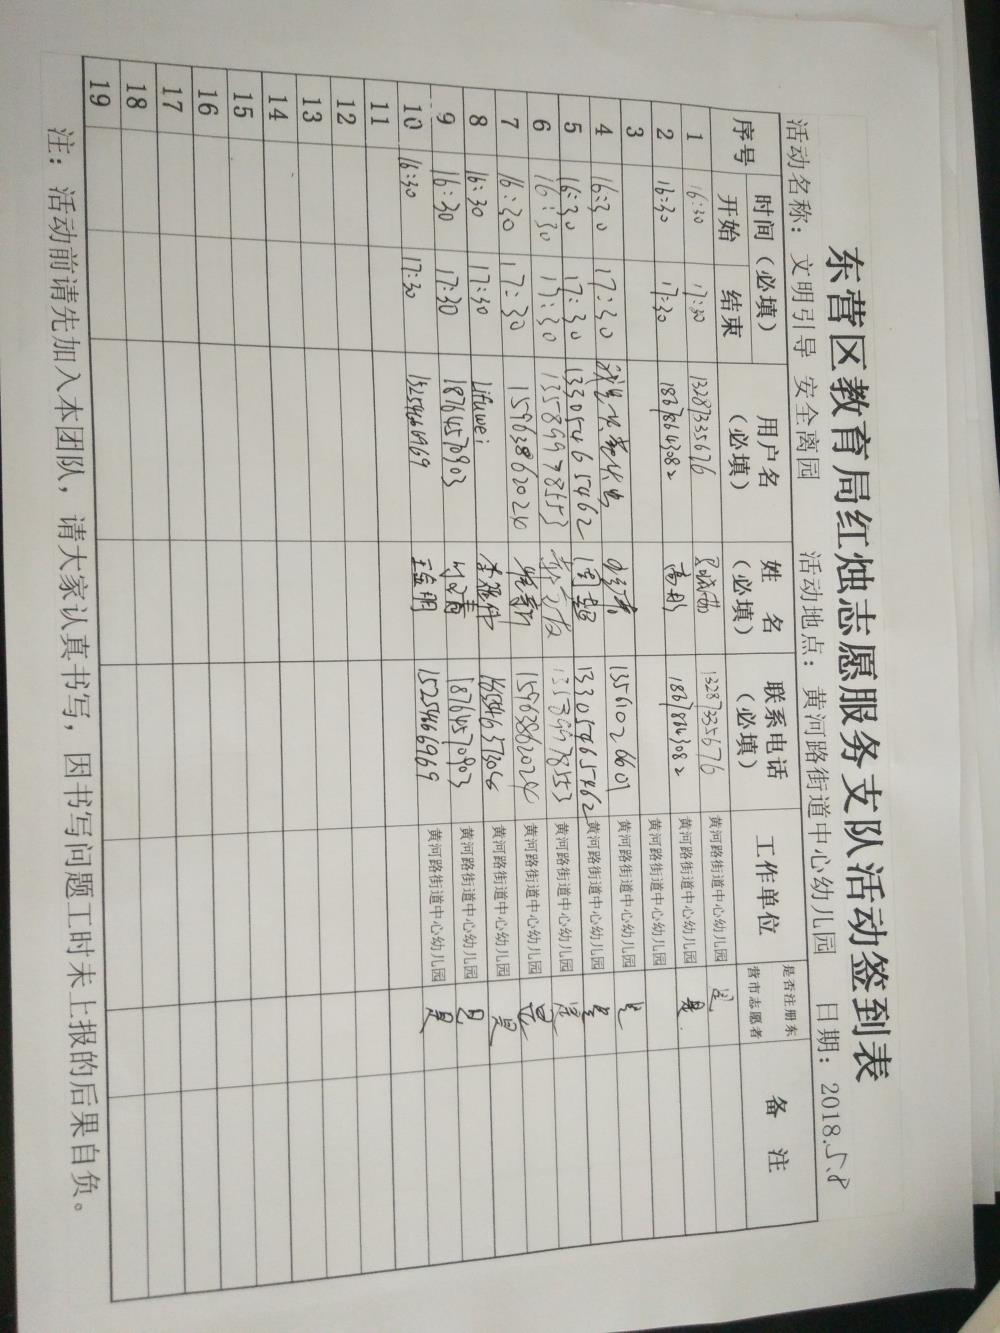 东营区教育局红烛志愿服务支队活动签到表
活动名称：文明引导 安全离园 活动地点：黄河路街道中心幼儿园 日期：2018.5.8
序号 时间（必填） 用户名（必填） 姓 名（必填） 联系电话（必填） 工作单位 是否注册东营市志愿者 备 注
开始 结束
1 16:30 17:30 13287335676 13287335676 黄河路街道中心幼儿园 是
2 16:30 17:30 18678643082 高彤 18678643082 黄河路街道中心幼儿园 是
3 黄河路街道中心幼儿园
4 16:30 17:30 13561026601 黄河路街道中心幼儿园 是
5 16:30 17:30 13305465462 周超 13305465462 黄河路街道中心幼儿园 是
6 16:30 17:30 13589978553 13589978553 黄河路街道中心幼儿园 是
7 16:30 17:30 15963862024 15963862024 黄河路街道中心幼儿园 是
8 16:30 17:30 Lifuwei 黄河路街道中心幼儿园 是
9 16:30 17:30 18764570903 18764570903 黄河路街道中心幼儿园 是
10 16:30 17:30 15254666969 王孟明 15254666969 黄河路街道中心幼儿园 是
11
12
13
14
15
16
17
18
19
注：活动前请先加入本团队，请大家认真书写，因书写问题工时未上报的后果自负。